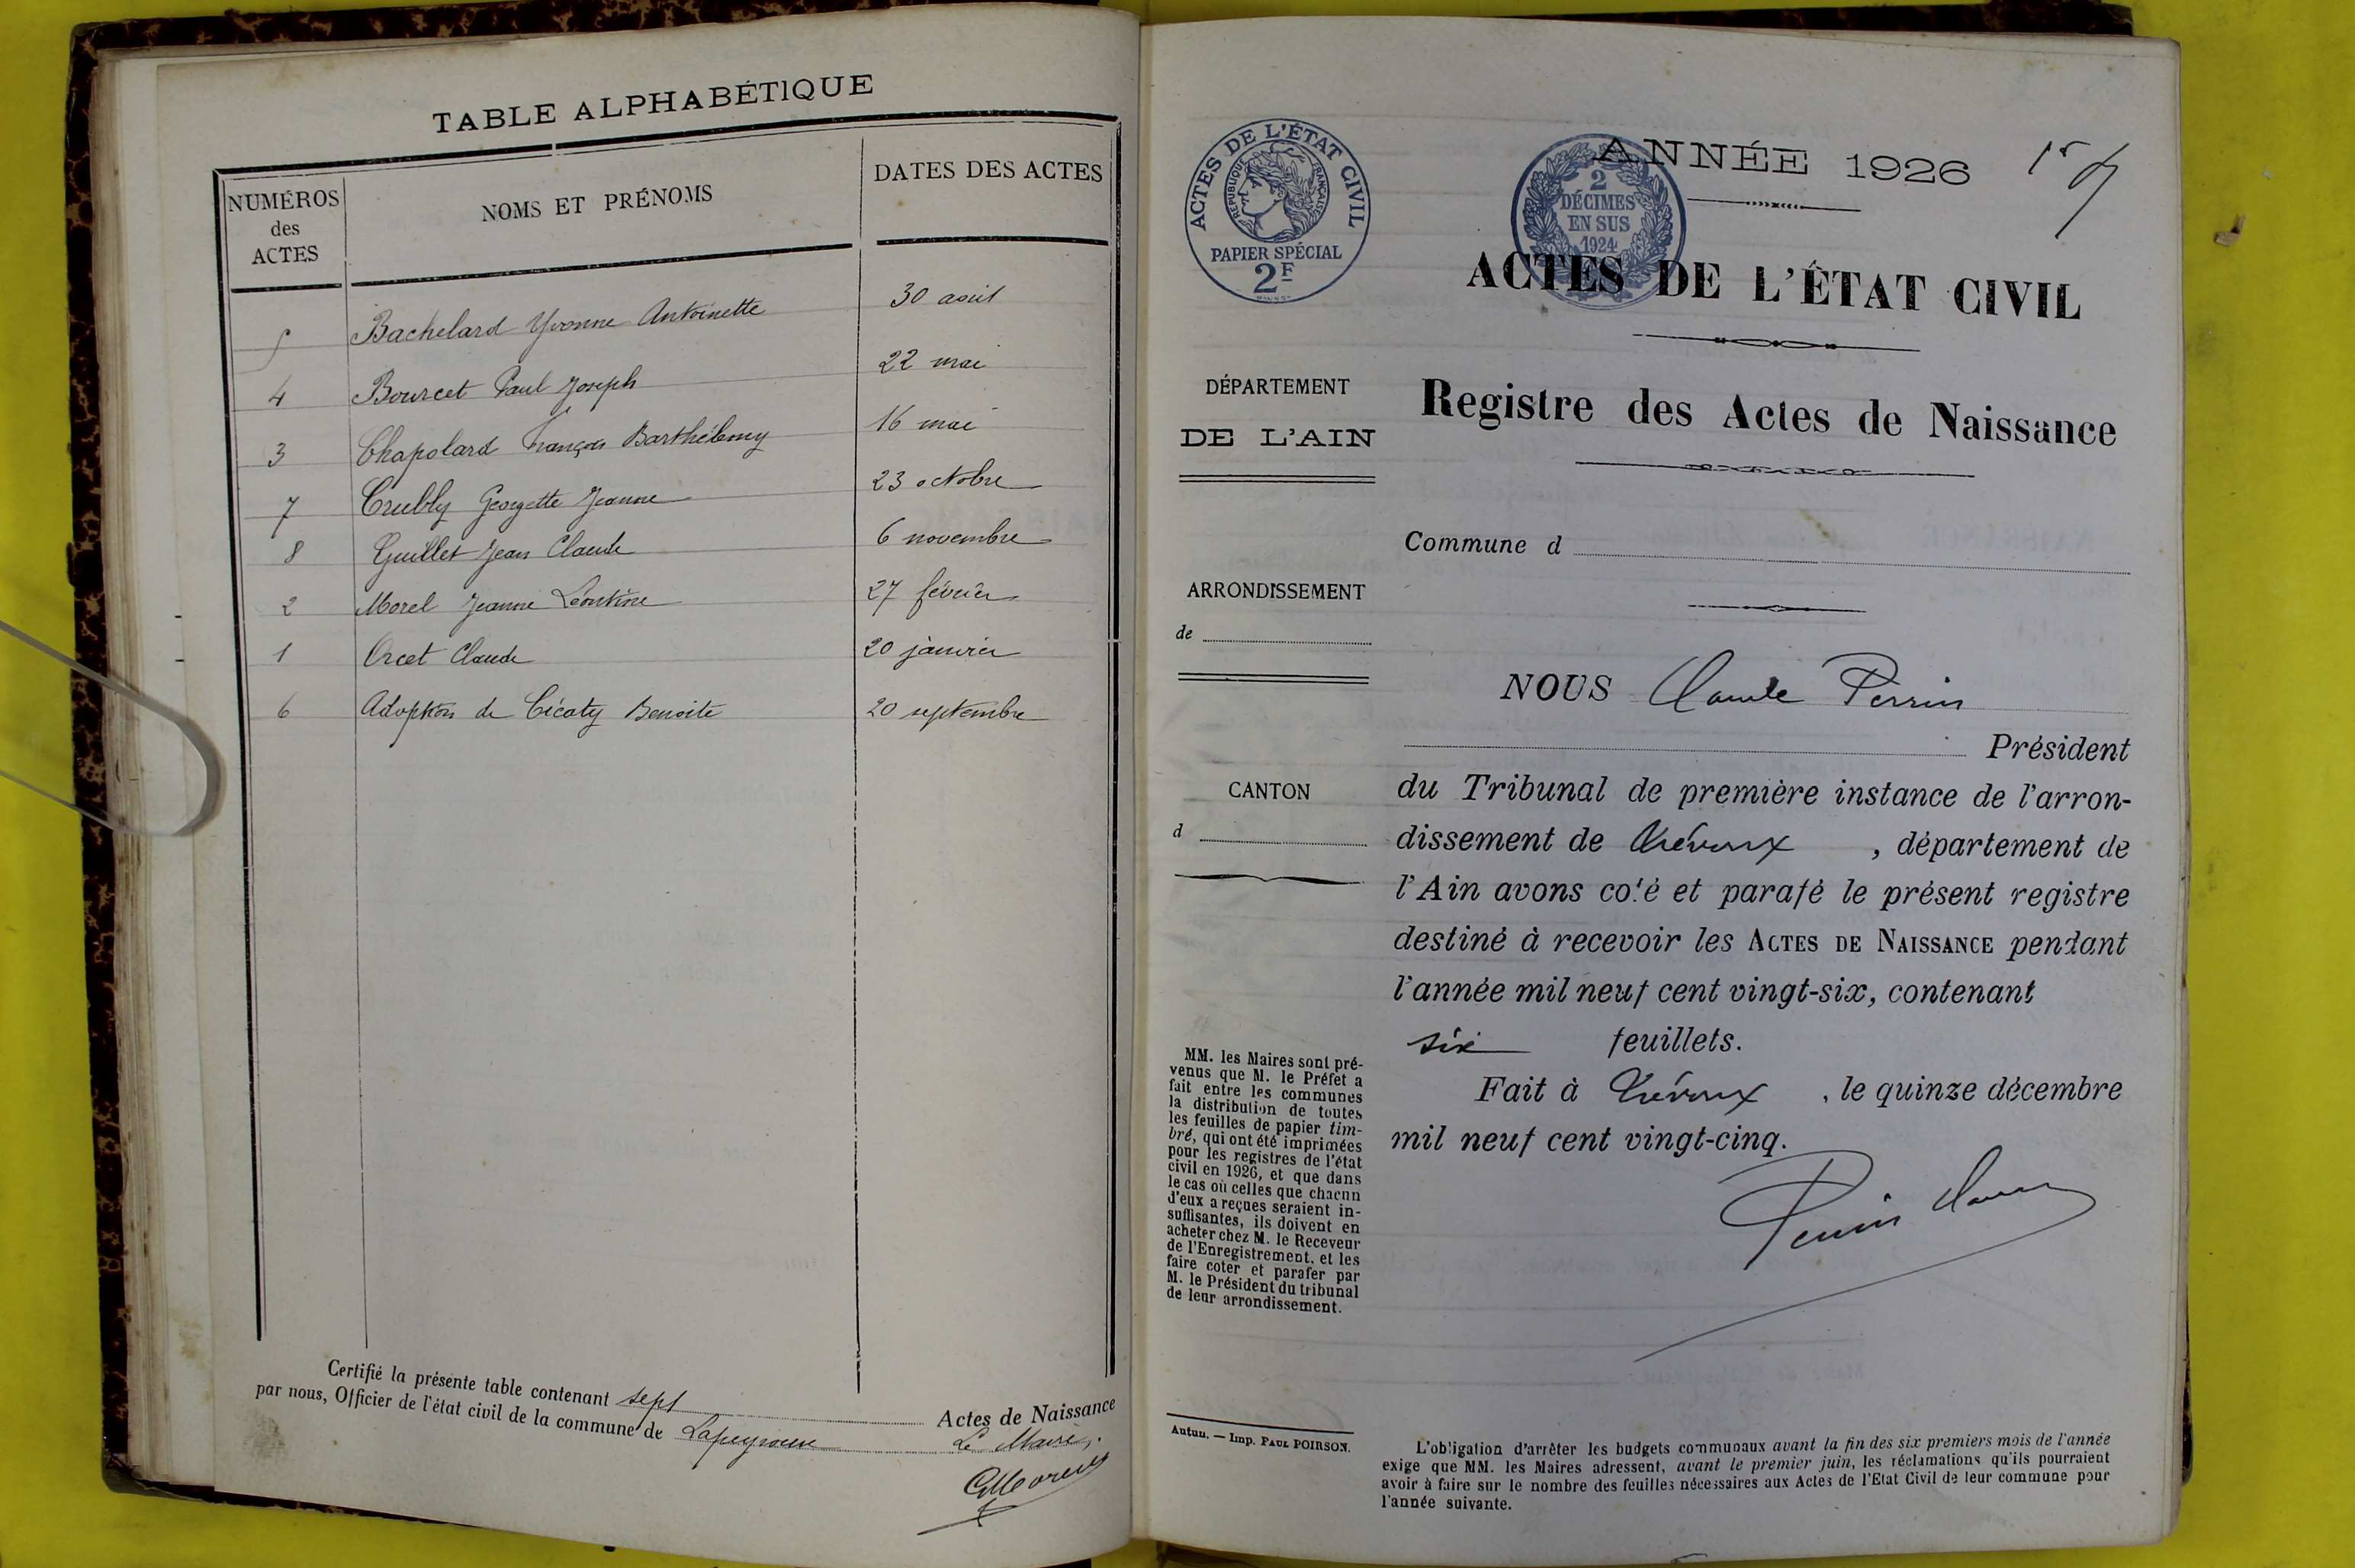 TABLE ALPHABÉTIQUE
NUMÉROS
des
ACTES
NOMS ET PRÉNOMS
DATES DES ACTES
5 Bachelard Yvonne Antoinette 30 août
4 Bourcet Paul Joseph 22 mai
3 Chapolard François Barthélemy 16 mai
7 Crubly Georgette Jeanne 23 octobre
8 Guillet Jean Claude 6 novembre
2 Morel Jeanne Léontine 27 février
1 Orcet Claude 20 janvier
6 Adoption de Cécaty Benoite 20 septembre
Certifié la présente table contenant sept Actes de Naissance
par nous, Officier de l'état civil de la commune de Lapeyrouse
Le Maire,
ACTES DE L'ÉTAT CIVIL
RÉPUBLIQUE FRANÇAISE
PAPIER SPÉCIAL
2F
2
DÉCIMES
EN SUS
1924
ANNÉE 1926
ACTES DE L'ÉTAT CIVIL
Registre des Actes de Naissance
DÉPARTEMENT
DE L'AIN
Commune d
ARRONDISSEMENT
de
CANTON
d
NOUS Claude Perrin
Président
du Tribunal de première instance de l'arron-
dissement de Trévoux , département de
l'Ain avons coté et parafé le présent registre
destiné à recevoir les ACTES DE NAISSANCE pendant
l'année mil neuf cent vingt-six, contenant
six feuillets.
Fait à Trévoux , le quinze décembre
mil neuf cent vingt-cinq.
Perrin Claude
MM. les Maires sont pré-
venus que M. le Préfet a
fait entre les communes
la distribution de toutes
les feuilles de papier tim-
bré, qui ont été imprimées
pour les registres de l'état
civil en 1926, et que dans
le cas où celles que chacun
d'eux a reçues seraient in-
suffisantes, ils doivent en
acheter chez M. le Receveur
de l'Enregistrement, et les
faire coter et parafer par
M. le Président du tribunal
de leur arrondissement.
Autun. — Imp. PAUL POIRSON.
L'obligation d'arrêter les budgets communaux avant la fin des six premiers mois de l'année
exige que MM. les Maires adressent, avant le premier juin, les réclamations qu'ils pourraient
avoir à faire sur le nombre des feuilles nécessaires aux Actes de l'Etat Civil de leur commune pour
l'année suivante.